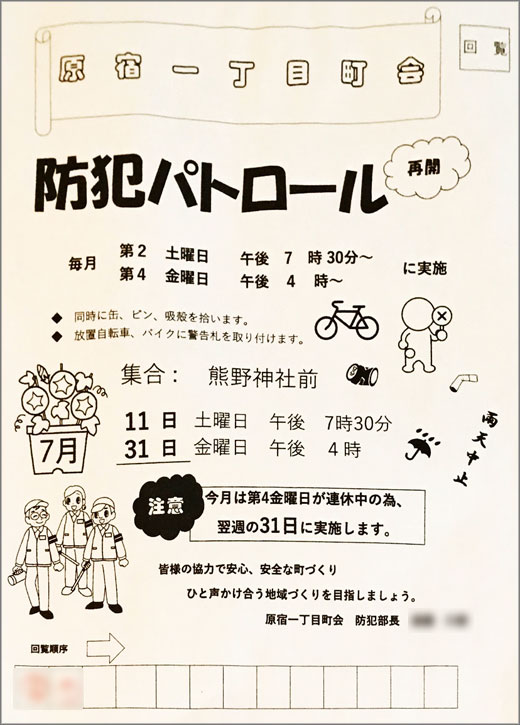 回覧
原宿一丁目町会
防犯パトロール
再開
毎月 第2 土曜日 午後 7 時 30分～
第4 金曜日 午後 4 時～
に実施
◆ 同時に缶、ビン、吸殻を拾います。
◆ 放置自転車、バイクに警告札を取り付けます。
集合： 熊野神社前
7月
11 日 土曜日 午後 7時30分
31 日 金曜日 午後 4 時
雨天中止
注意
今月は第4金曜日が連休中の為、
翌週の31日に実施します。
皆様の協力で安心、安全な町づくり
ひと声かけ合う地域づくりを目指しましょう。
原宿一丁目町会 防犯部長
回覧順序